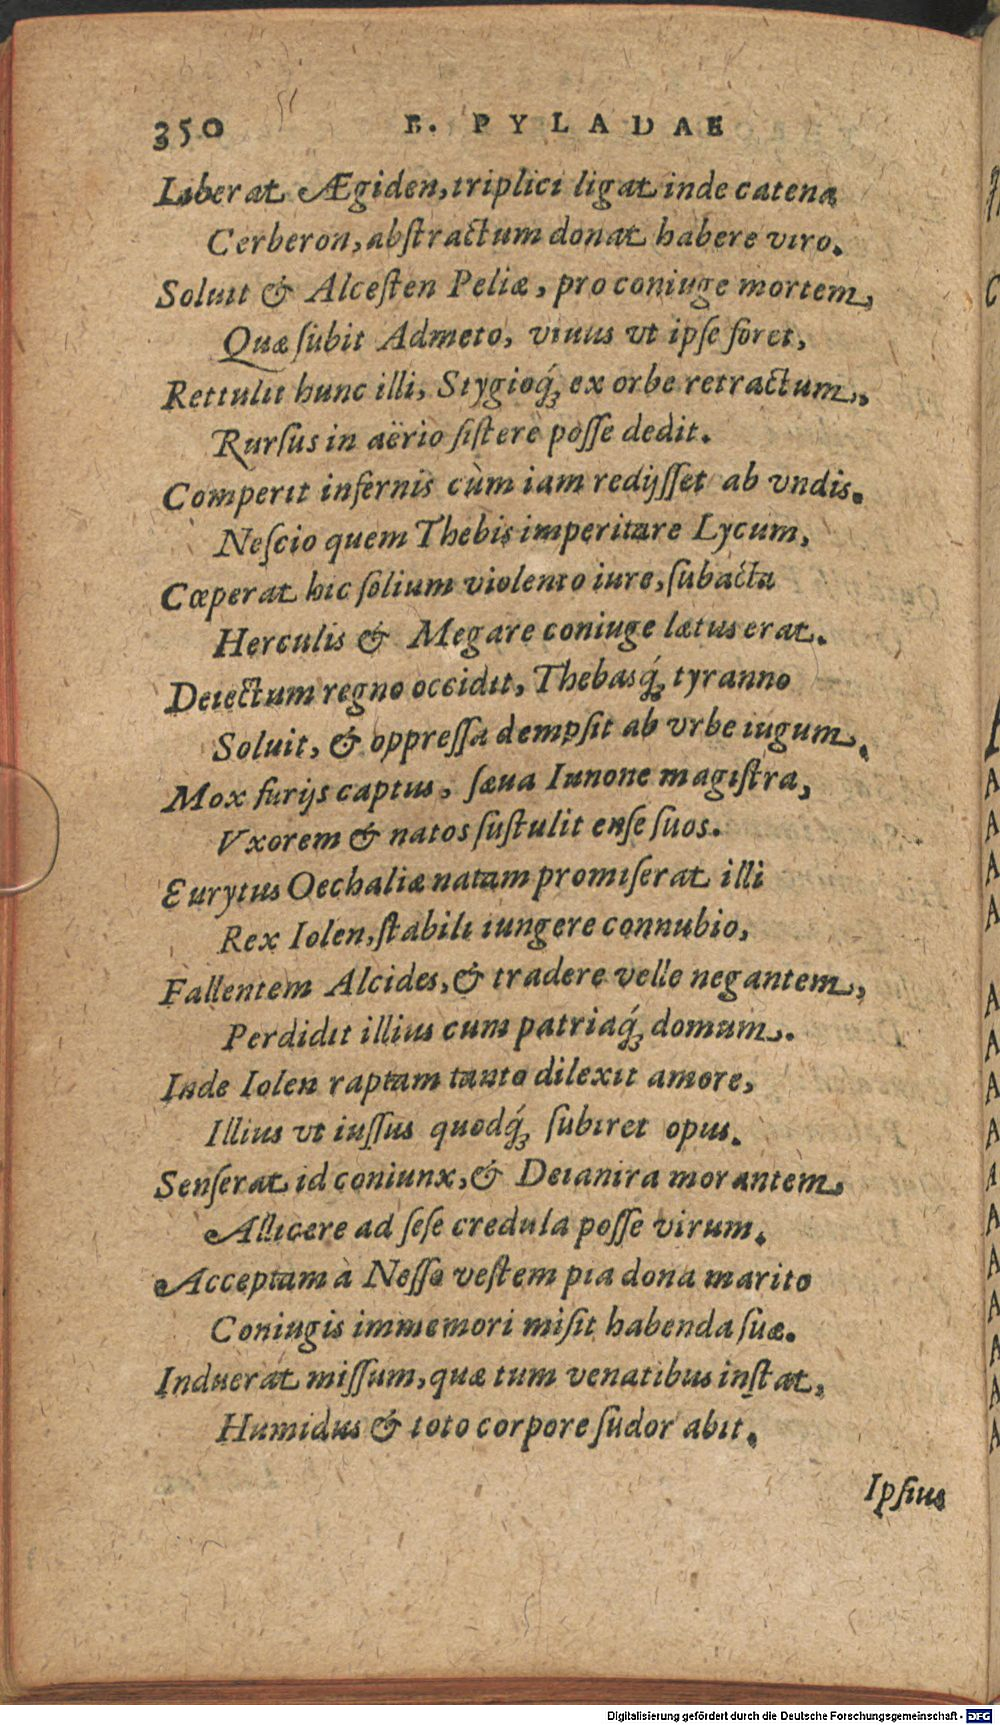 350 B. PYLADAE
Liberat Ægiden, triplici ligat inde catena
Cerberon, abſtractum donat habere viro.
Soluit & Alceſten Peliæ, pro coniuge mortem,
Quæ ſubit Admeto, viuus vt ipſe foret,
Rettulit hunc illi, Stygioq́ꝫ ex orbe retractum,
Rurſus in aërio ſiſtere poſſe dedit.
Comperit infernis cùm iam redijſſet ab vndis.
Neſcio quem Thebis imperitare Lycum,
Cœperat hic ſolium violento iure, ſubacta
Herculis & Megare coniuge lætus erat.
Deiectum regno occidit, Thebasq́ꝫ tyranno
Soluit, & oppreſſa dempſit ab vrbe iugum.
Mox furijs captus, ſæua Iunone magiſtra,
Vxorem & natos ſuſtulit enſe ſuos.
Eurytus Oechaliæ natam promiſerat illi
Rex Iolen, ſtabili iungere connubio,
Fallentem Alcides, & tradere velle negantem,
Perdidit illius cum patriaq́ꝫ domum.
Inde Iolen raptam tanto dilexit amore,
Illius vt iuſſus quodq́ꝫ ſubiret opus.
Senſerat id coniunx, & Deianira morantem,
Allicere ad ſeſe credula poſſe virum.
Acceptam à Neſſo veſtem pia dona marito
Coniugis immemori miſit habenda ſuæ.
Induerat miſſum, quæ tum venatibus inſtat,
Humidus & toto corpore ſudor abit.
Ipſius
Digitalisierung gefördert durch die Deutsche Forschungsgemeinschaft - DFG